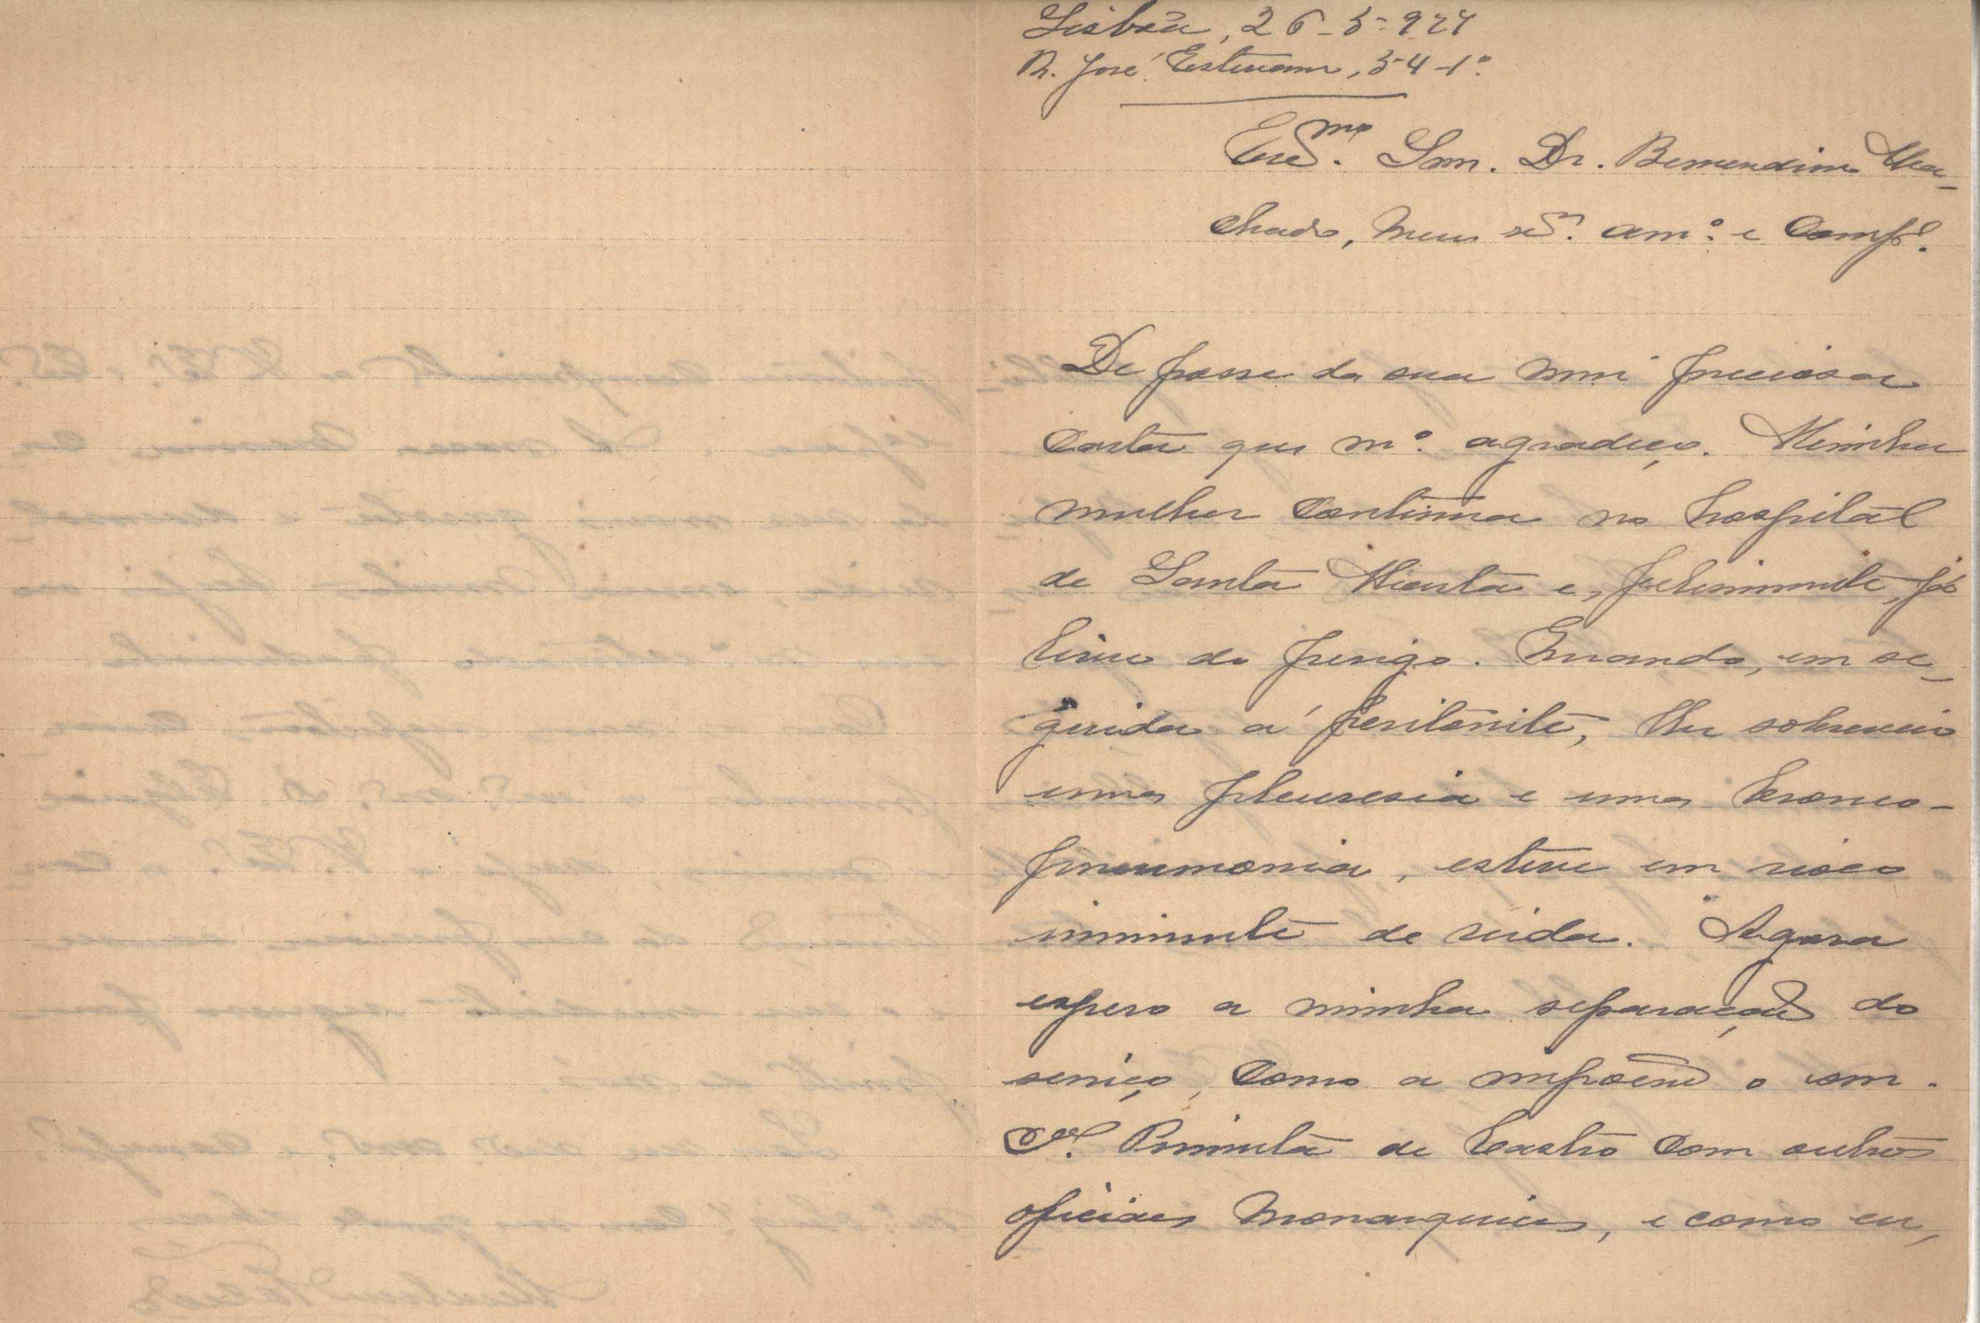 Lisbôa, 26-5-927
R. José Estevam, 54-1º.
Exmo. Snr. Dr. Bernardino Ma-
chado, meu am.º e
De posse da sua mui preciosa
carta que m.º agradeço. Minha
mulher continua no hospital
de Santa Marta e, felizmente, já
livre de perigo. Quando, em se-
guida á peritonite, lhe sobreveio
uma pleuresia e uma bronco-
pneumonia, esteve em risco
iminente de vida. Agora
espero a minha separação do
serviço, como a impoem o
Pimenta de Castro com outros
oficiais monarquicos, e como eu,